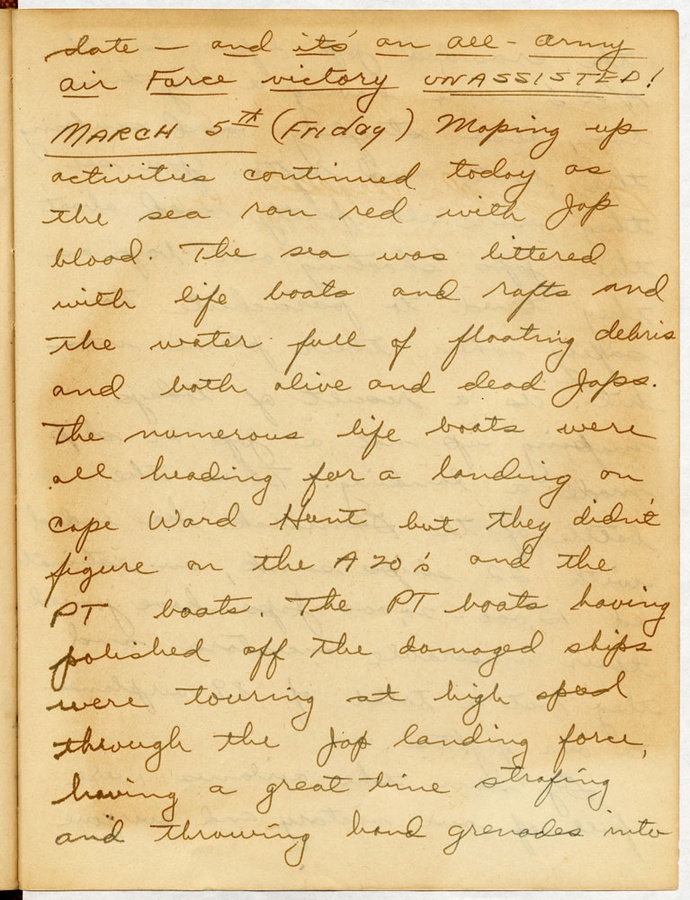 date — and it's an all-army
air Force victory UNASSISTED!
MARCH 5TH (Friday) Moping up
activities continued today as
the sea ran red with Jap
blood. The sea was littered
with life boats and rafts and
the water full of floating debris
and both alive and dead Japs.
The numerous life boats were
all heading for a landing on
Cape Ward Hunt but they didn't
figure on the A20's and the
PT boats. The PT boats having
polished off the damaged ships
were touring at high speed
through the Jap landing force,
having a great time strafing
and throwing hand grenades into